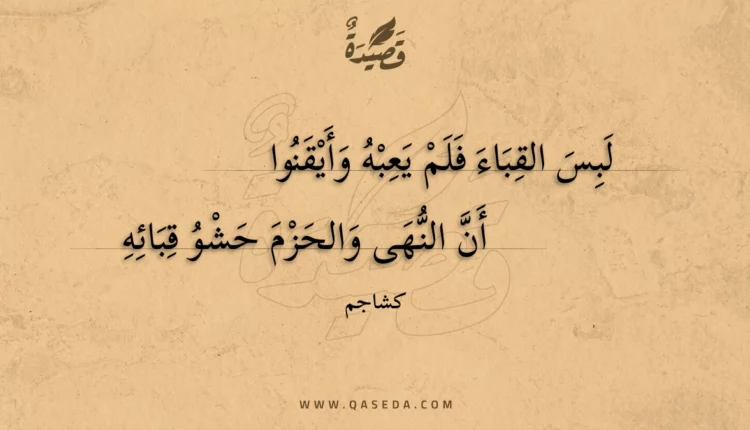 قَصِيْدَةٌ
لَبِسَ القِبَاءَ فَلَمْ يَعِبْهُ وَأَيْقَنُوا
أَنَّ النُّهَى وَالحَزْمَ حَشْوُ قِبَائِهِ
كشاجم
WWW.QASEDA.COM